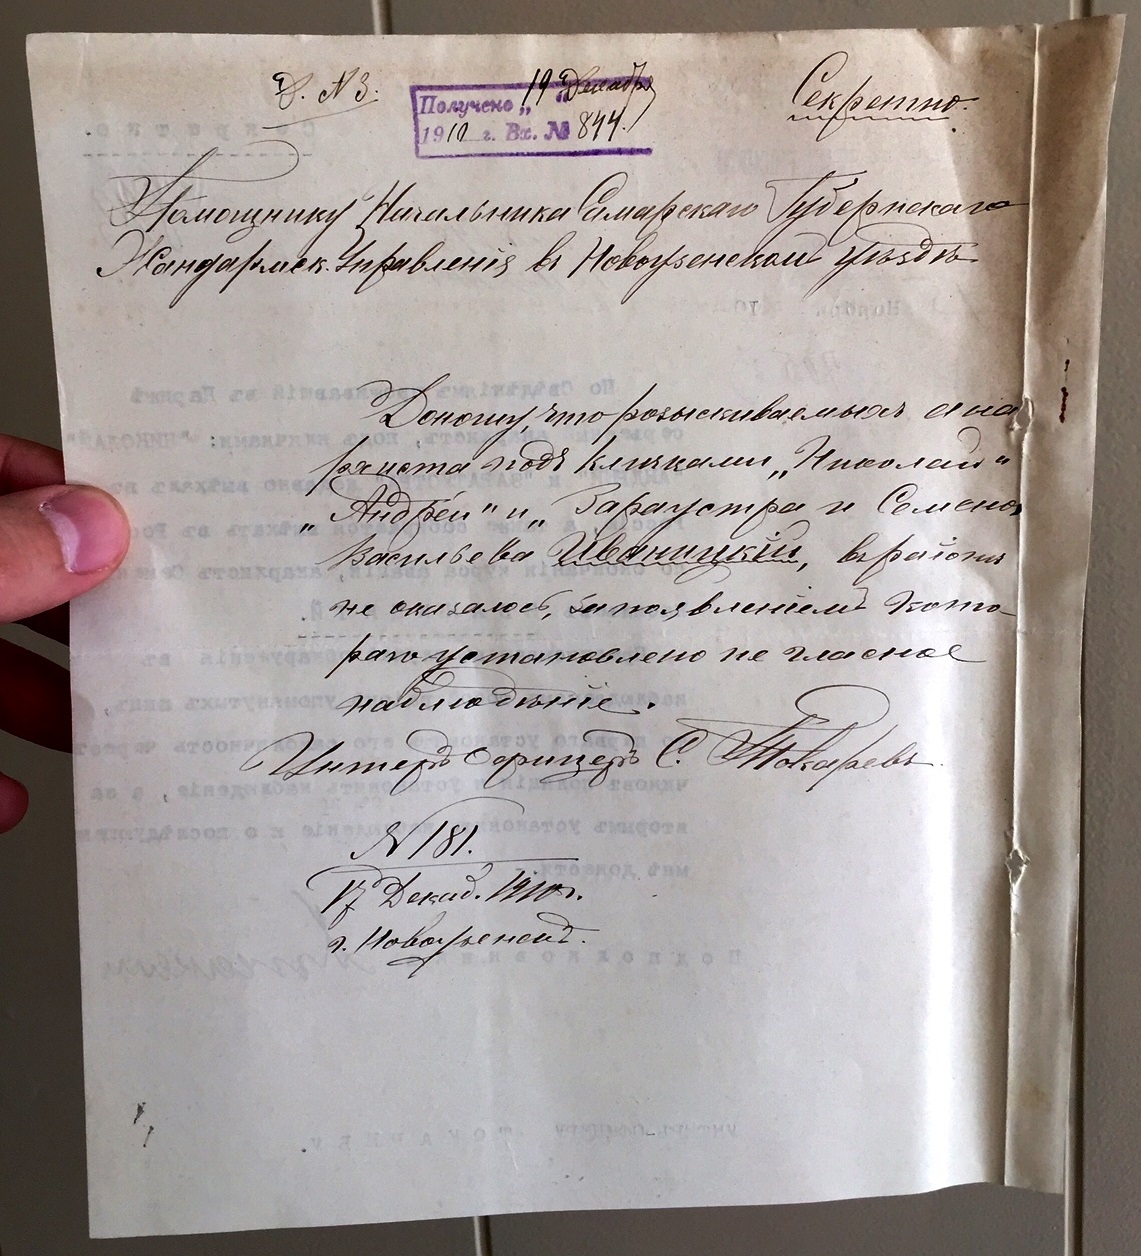 Д. № 3.
Секретно.
Получено „ 19 " Декабря
1910 г. Вх. № 844.
Помощнику Начальника Самарскаго Губернскаго
Жандармск. Управленія въ Новоузенскомъ уѣздѣ
Доношу, что розыскиваемыхъ ана
рхиста подъ кличками „Николай"
„Андрей" и „Зараустра и Семена
Васильева Иваницкій, въ районѣ
не оказалось, за появленіемъ кото
раго установлено не гласное
наблюденіе.
Унтеръ офицеръ С. Токаревъ.
№ 181.
17 Декаб. 1910 г.
г. Новоузенскъ.